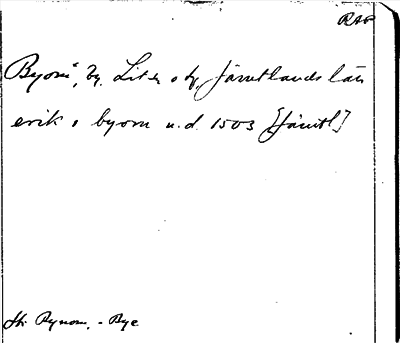 RAP
Byom, by, Lits s of, Jämtlands län
erik i byom u.d. 1503 [Jämtl]
Jfr Bynom, -Bye